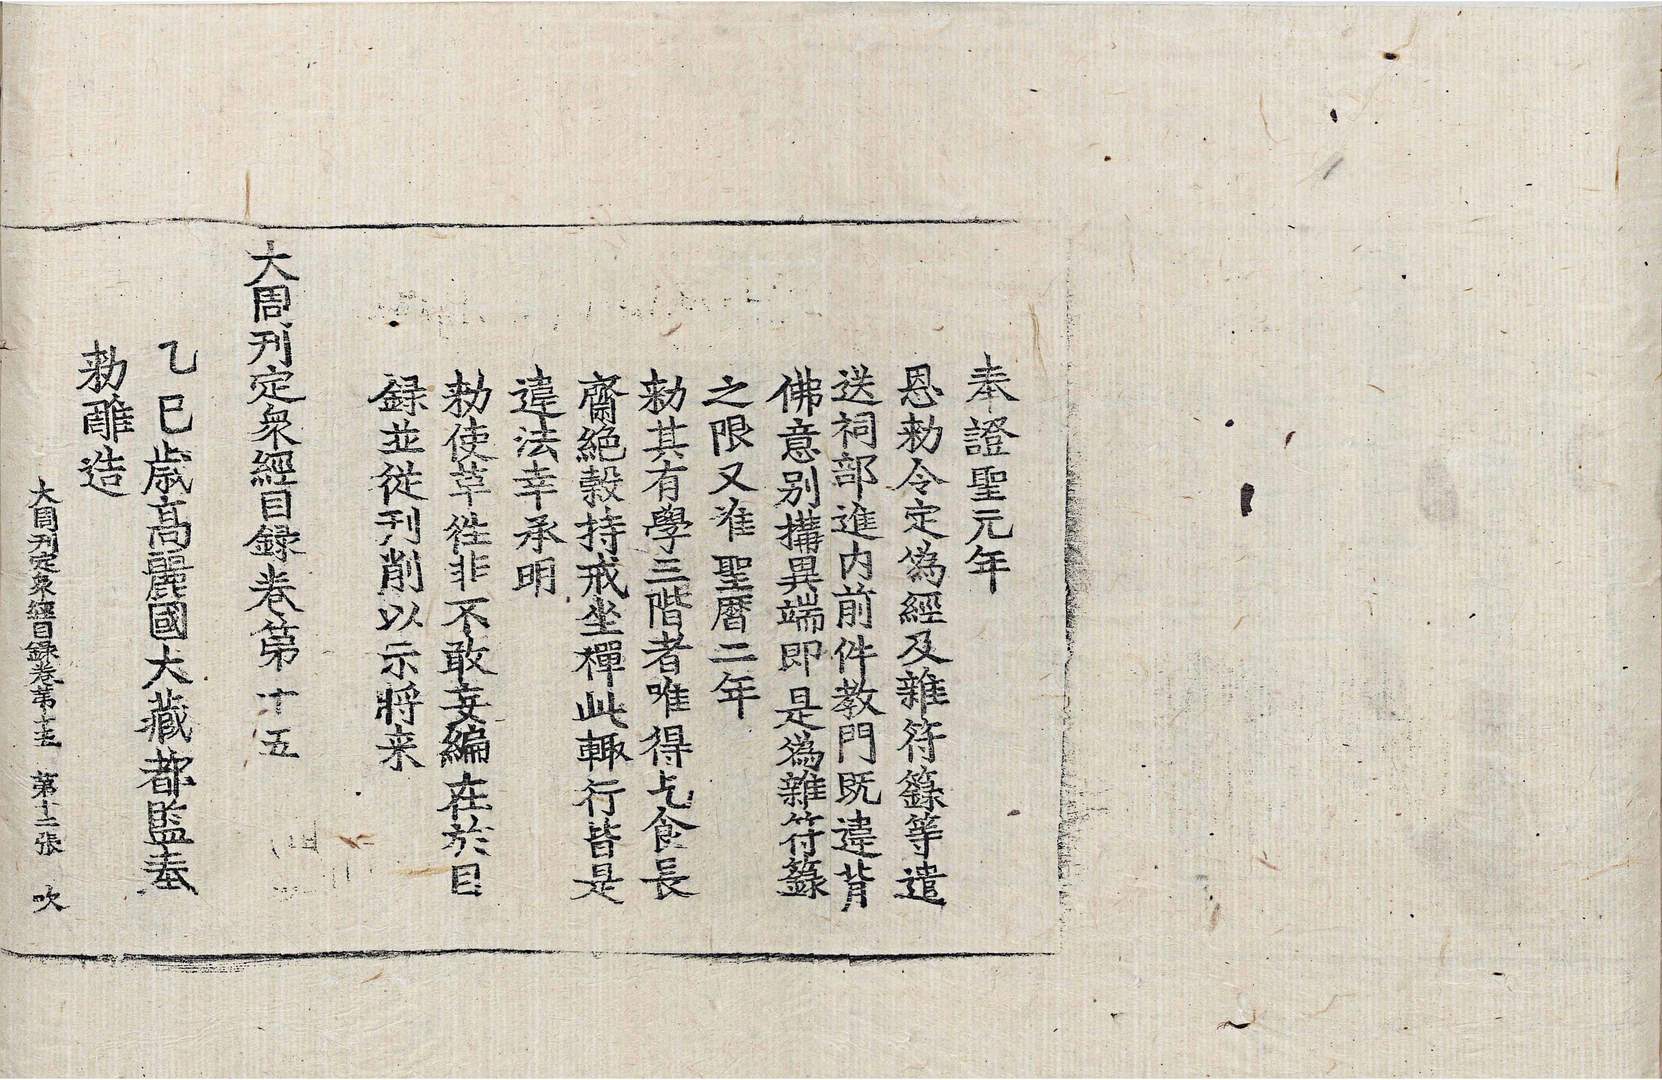 奉證聖元年
恩勅令定偽經及雜符籙等遣
送祠部進內前件教門既違背
佛意別搆異端即是偽雜符籙
之限又准聖曆二年
勅其有學三階者唯得乞食長
齋絕穀持戒坐禪此輙行皆是
違法幸承明
勅使革往非不敢妄編在於目
録並從刊削以示將来
大周刊定衆經目録卷第十五
乙巳歲高麗國大藏都監奉
勅雕造
大周刊定衆經目録卷第十五 第十二張 吹